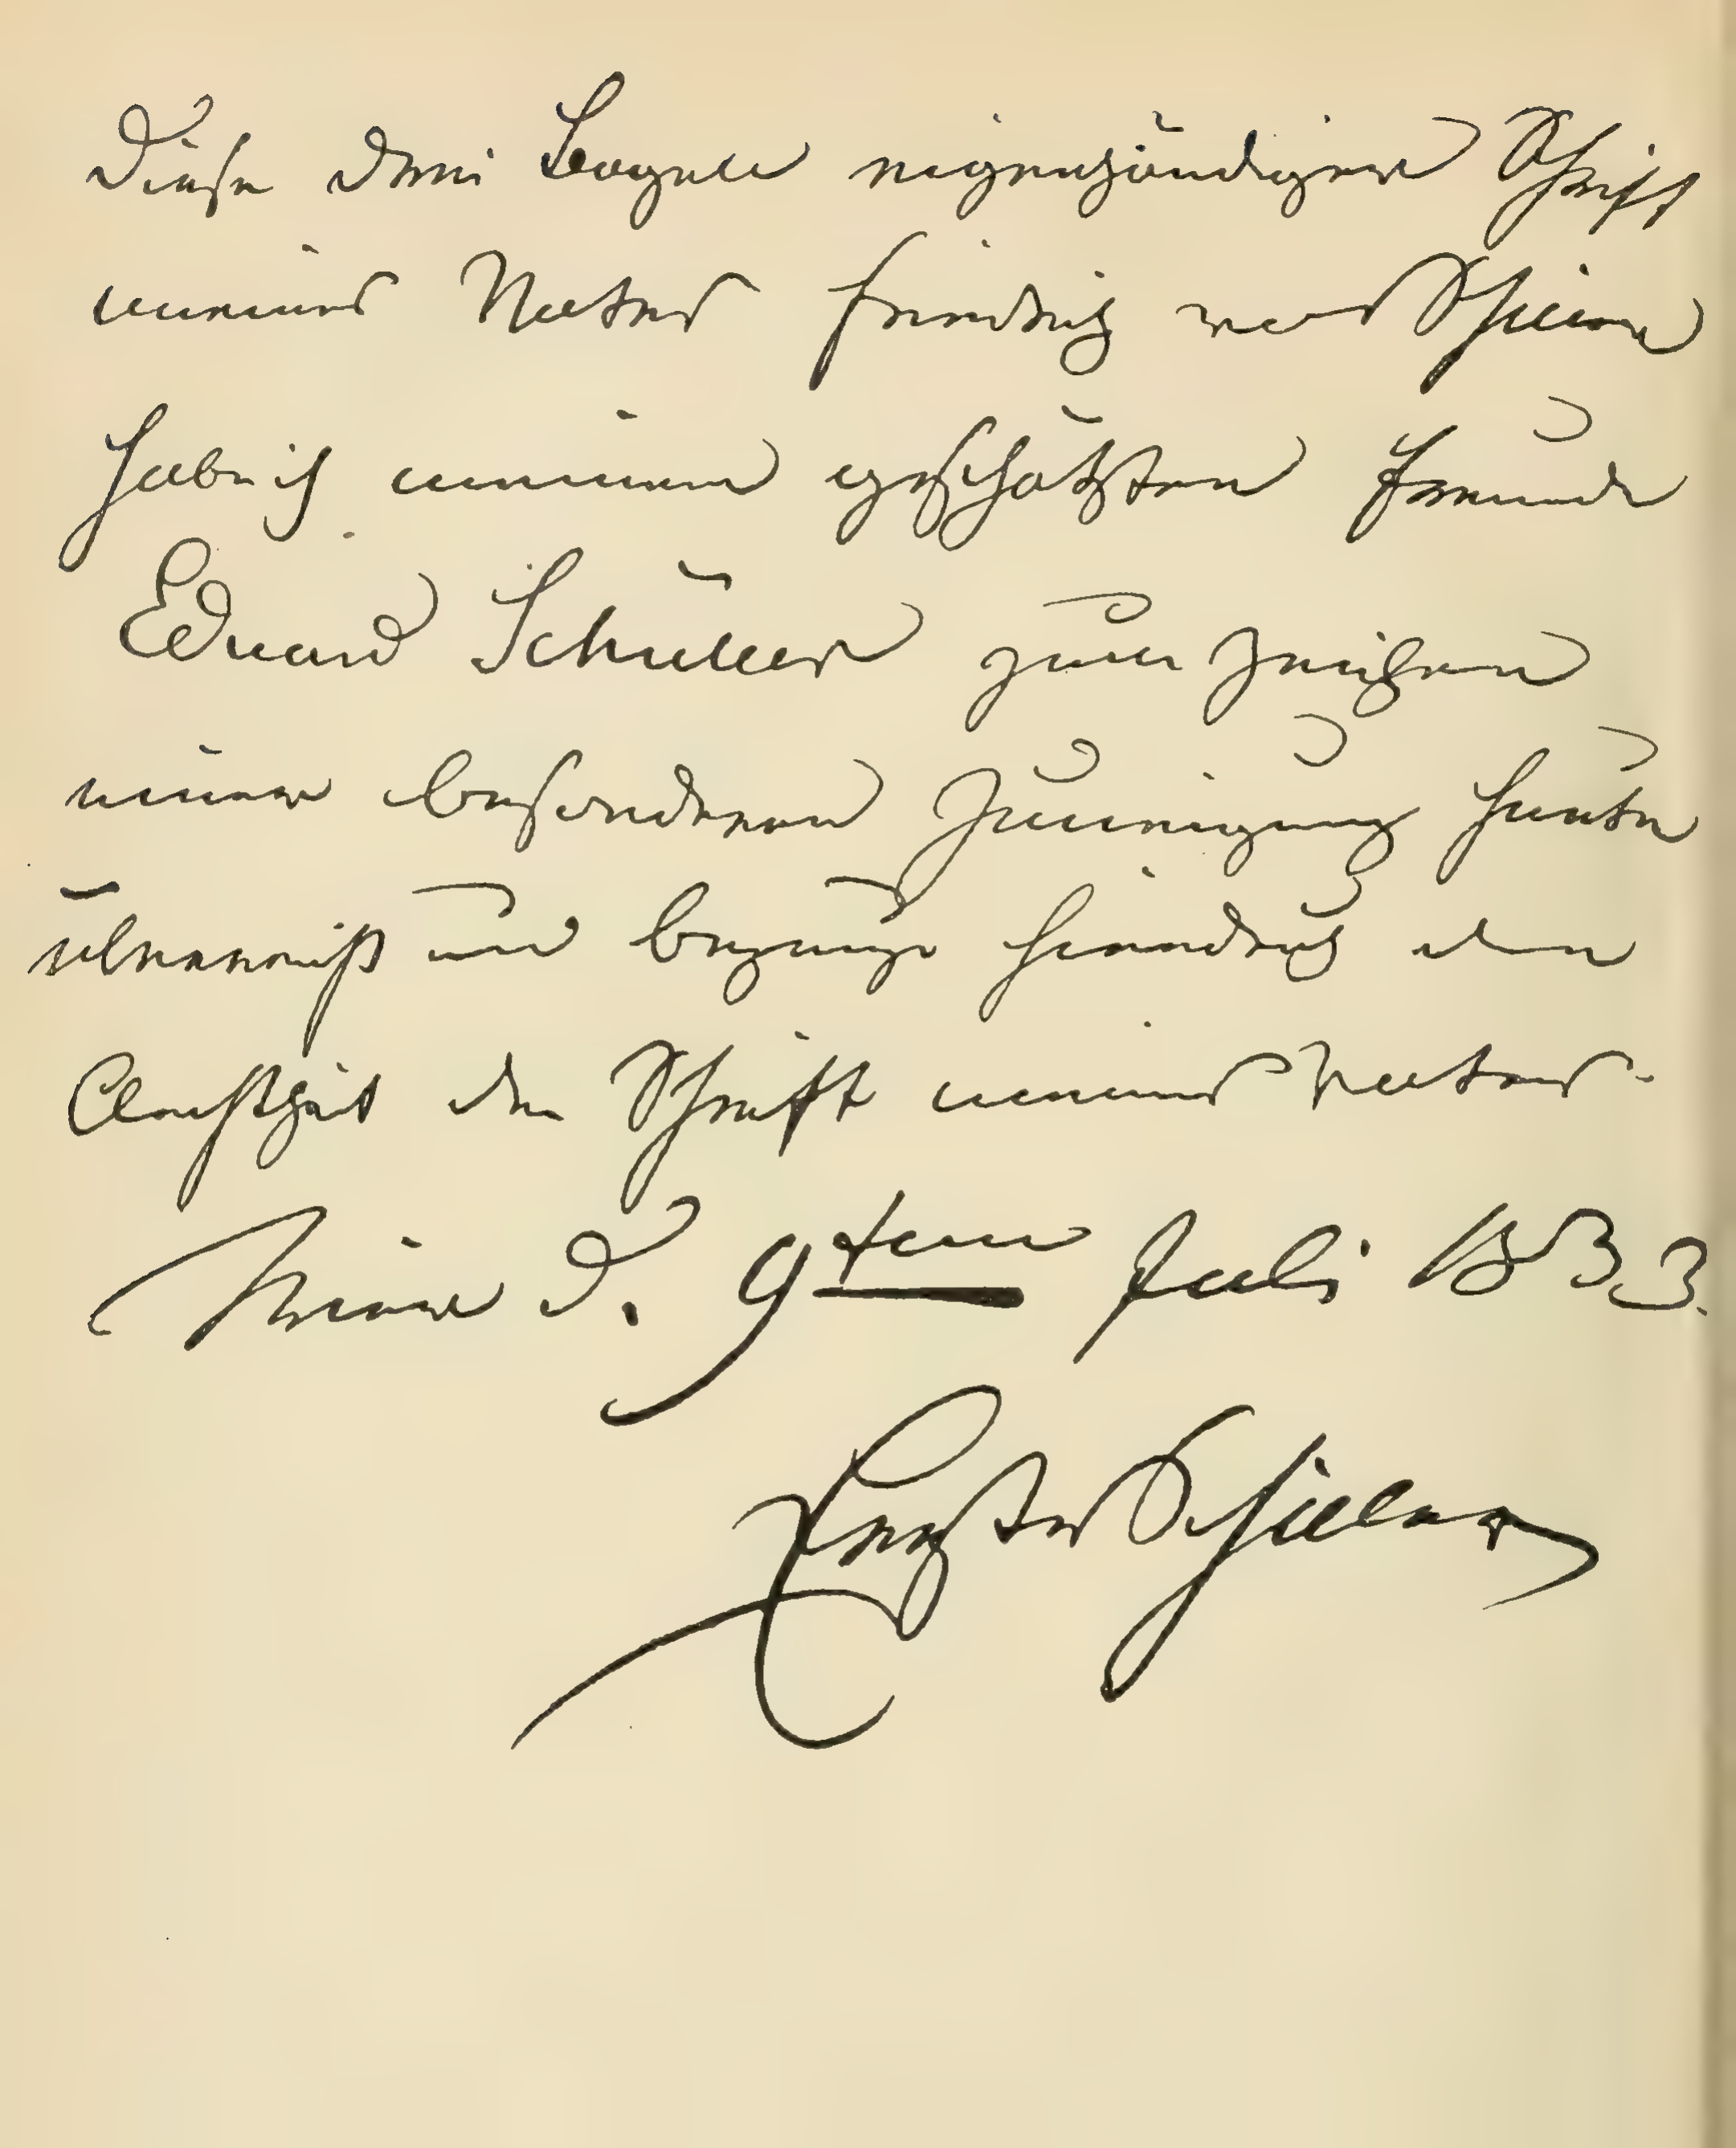 Diese drei Bogen eigenhändiger Schrift
meines Vaters Friedrich von Schiller
habe ich meinem geschätzten Freunde
Eduard Schüller zum Zeichen
meiner besonderen Zuneigung heute
überreicht und bezeuge hierdurch den
Aechtheit der Schrift meines Vaters.
Trier d. 9ten Juli 1833.
Ernst v Schiller